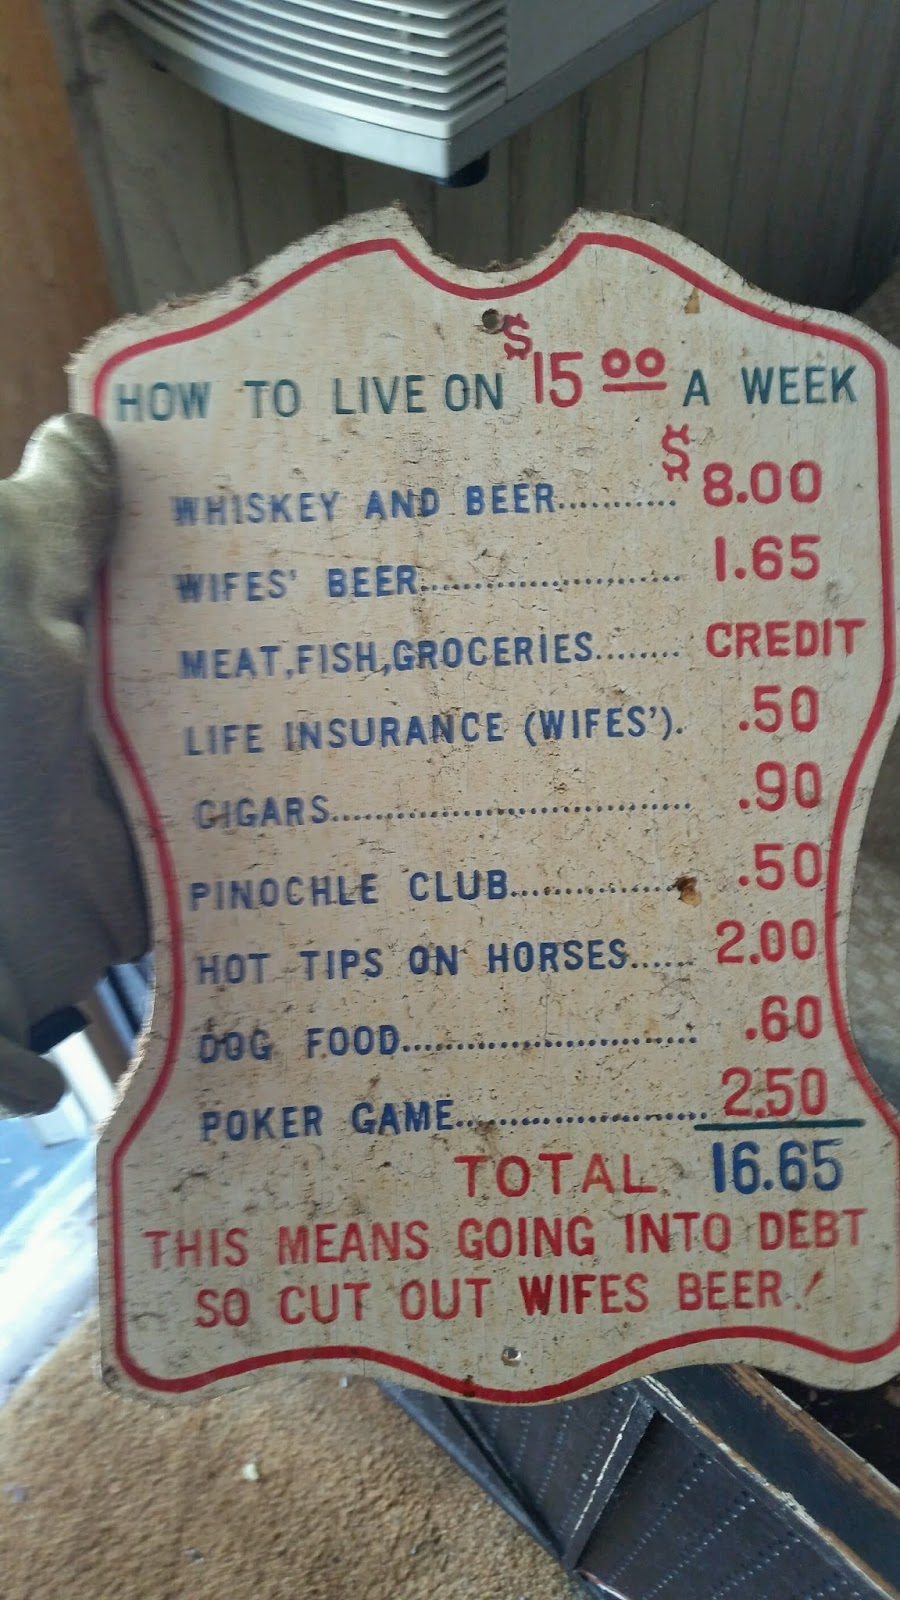 HOW TO LIVE ON $15.00 A WEEK
WHISKEY AND BEER........... $8.00
WIFES' BEER........................... 1.65
MEAT,FISH,GROCERIES........ CREDIT
LIFE INSURANCE (WIFES'). .50
CIGARS..................................... .90
PINOCHLE CLUB.................. .50
HOT TIPS ON HORSES...... 2.00
DOG FOOD.............................. .60
POKER GAME.......................... 2.50
TOTAL 16.65
THIS MEANS GOING INTO DEBT
SO CUT OUT WIFES BEER!